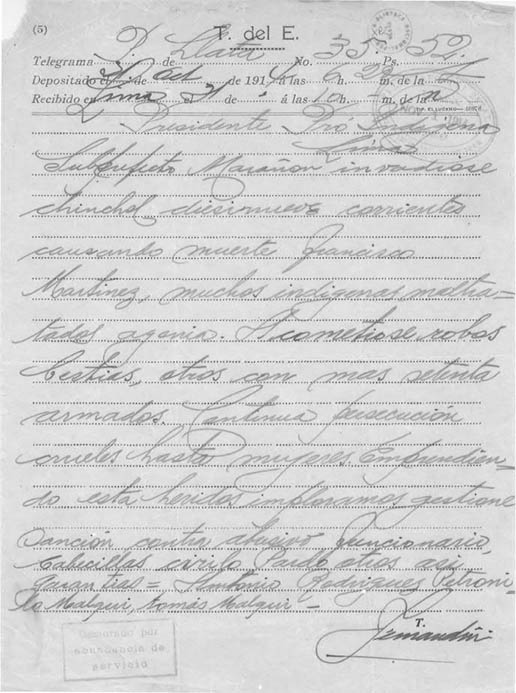 (5)
T. del E.
Telegrama P. de Llata No. 35 Ps. 52
Depositado el 31 de Oct de 191 á las 6 h m. de la
Recibido en Lima el 31 de á las 10 h m. de la n
NOV 1 191
Presidente Pro Indígena
Lima
Subprefecto Marañon invadiose
chinchol diesinueve corrientes
causando muerte Francisco
Martinez, muchos indigenas maltra=
tados agonia. Acometiose, robos
bestias, otros con mas setenta
armados. Continua persecución
crueles hasta mujeres. Emprendien-
do esta heridos imploramos gestione
sanción contra abusivo funcionario
Cabecillas cirilo Pardo otros asi
garantias = Antonio Rodriguez Petroni-
lo Malqui, tomás Malqui -
T.
Demorado por
abundancia de
servicio